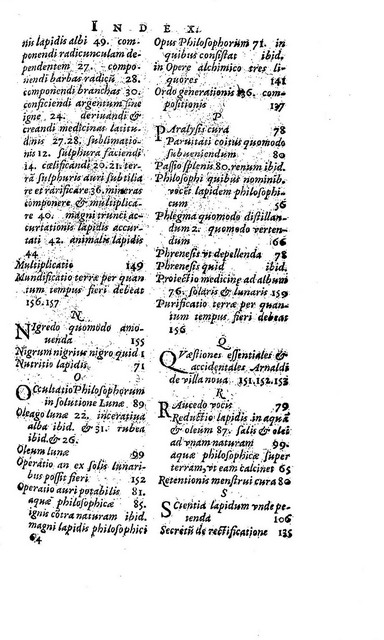 INDEX.
nis lapidis albi 49. com-
ponendi radicunculam de-
pendentem 27. compo-
nendi barbas radicū 28.
componendi branchas 30.
conficiendi argentum sine
igne 24. deriuandi &
creandi medicinas latitu-
dinis 27.28. sublimatio-
nis 12. sulphura faciendi
14. cælificandi 20.21. ter-
rā sulphuris auri subtilia
re et rarificare 36. mineras
componere & multiplica-
re 40. magni trunci ac-
curtationis lapidis accur-
tati 42. animalis lapidis
44
Multiplicatio 149
Mundificatio terræ per quan
tum tempus fieri debeat
156.157
N
NIgredo quomodo amo-
uenda 155
Nigrum nigrius nigro quid 1
Nutritio lapidis 71
O
OCcultatio Philosophorum
in solutione Lunæ 89
Oleago lunæ 22. inceratiua
alba ibid. & 31. rubea
ibid. & 26.
Oleum lunæ 99
Operatio an ex solis lunari-
bus possit fieri 152
Operatio auri potabilis 81.
aquæ philosophicæ 85.
ignis cōtra naturam ibid.
magni lapidis philosophici
64
Opus Philosophorum 71. in
quibus consistat ibid.
in Opere alchimico tres li-
quores 141
Ordo generationis 136. com-
positionis 137
P
PAralysis cura 78
Paruitati coitus quomodo
subueniendum 80
Passio splenis 80. renum ibid.
Philosophi quibus nominib.
vocēt lapidem philosophi-
cum 56
Phlegma quomodo distillan-
dum 2. quomodo verten-
dum 166
Phrenesis vt depellenda 78
Phrenesis quid ibid.
Proiectio medicinæ ad album
76. solaris & lunaris 159
Purificatio terræ per quan-
tum tempus fieri debeat
156
Q
QVæstiones essentiales &
accidentales Arnaldi
de villa noua 151.152.153
R
RAucedo vocis 79
Reductio lapidis in aquā
& oleum 87. salis & olei
ad vnam naturam 99.
aquæ philosophicæ super
terram, vt eam calcinet 65
Retentionis menstrui cura 80
S
SCientia lapidum vnde pe-
tenda 106
Secretū de rectificatione 135